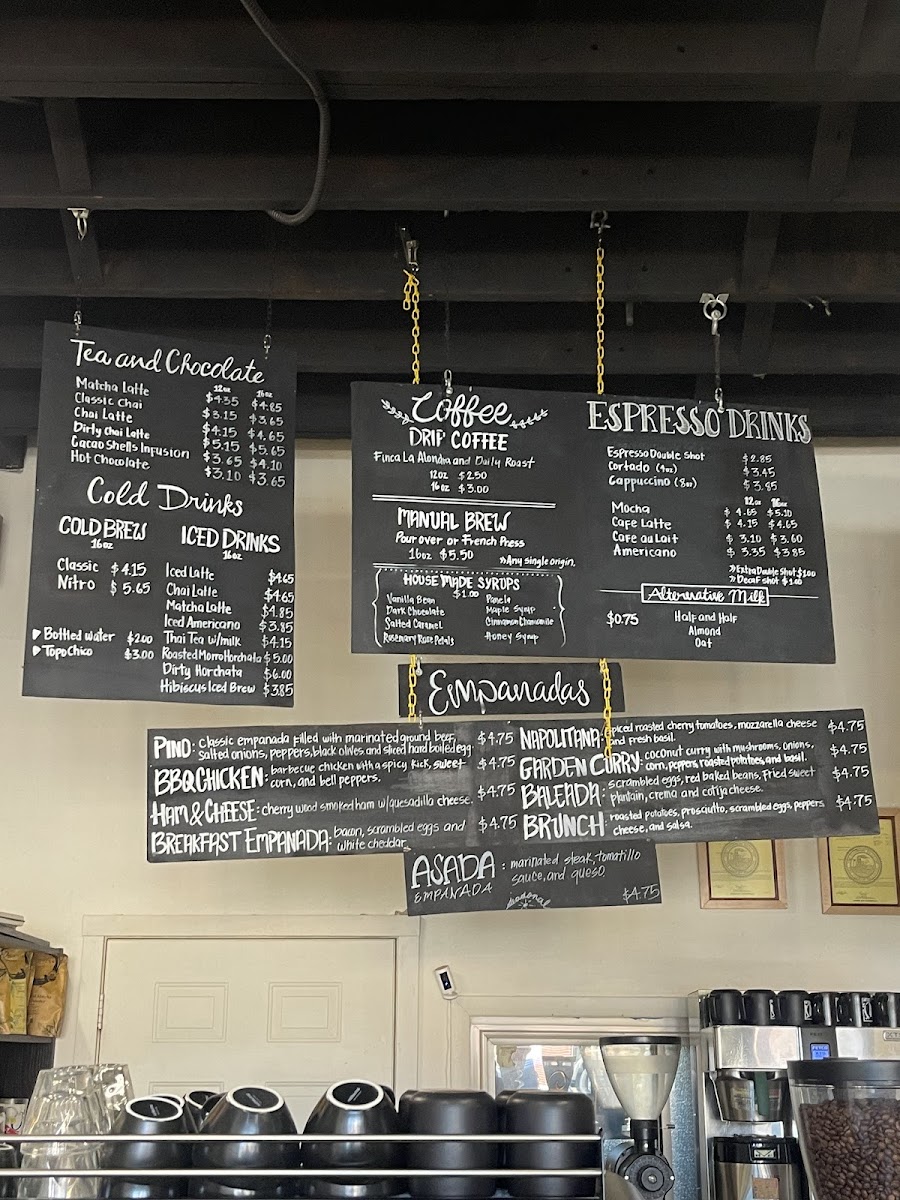 Tea and Chocolate
12oz 16oz
Matcha Latte $4.35 $4.85
Classic Chai $3.15 $3.65
Chai Latte $4.15 $4.65
Dirty Chai Latte $5.15 $5.65
Cacao Shells Infusion $3.65 $4.10
Hot Chocolate $3.10 $3.65
Cold Drinks
COLD BREW
16oz
Classic $4.15
Nitro $5.65
Bottled water $2.00
Topo Chico $3.00
ICED DRINKS
16oz
Iced Latte $4.65
Chai Latte $4.65
Matcha Latte $4.85
Iced Americano $3.85
Thai Tea w/milk $4.15
Roasted Morro Horchata $5.00
Dirty Horchata $6.00
Hibiscus Iced Brew $3.85
Coffee
DRIP COFFEE
Finca La Alondra and Daily Roast
12oz $2.50
16oz $3.00
MANUAL BREW
Pour over or French Press
16oz $5.50
»Any single origin.
HOUSE MADE SYRUPS
$1.00
Vanilla Bean Panela
Dark Chocolate Maple Syrup
Salted Caramel Cinnamon Chamomile
Rosemary Rose Petals Honey Syrup
ESPRESSO DRINKS
Espresso Double Shot $2.85
Cortado (4oz) $3.45
Cappuccino (8oz) $3.85
12oz 16oz
Mocha $4.65 $5.10
Cafe Latte $4.15 $4.65
Cafe au Lait $3.10 $3.60
Americano $3.35 $3.85
»Extra Double Shot $1.00
»Decaf shot $1.00
Alternative Milk
$0.75 Half and Half
Almond
Oat
Empanadas
PINO: Classic empanada filled with marinated ground beef, $4.75
salted onions, peppers, black olives and sliced hard boiled egg.
BBQ CHICKEN: barbecue chicken with a spicy kick, sweet $4.75
corn, and bell peppers.
HAM & CHEESE: cherry wood smoked ham w/quesadilla cheese. $4.75
BREAKFAST EMPANADA: bacon, scrambled eggs and $4.75
white cheddar.
NAPOLITANA: Spiced roasted cherry tomatoes, mozzarella cheese $4.75
and fresh basil.
GARDEN CURRY: coconut curry with mushrooms, onions, $4.75
corn, peppers, roasted potatoes, and basil.
BALEADA: scrambled eggs, red baked beans, fried sweet $4.75
plantain, crema and cotija cheese.
BRUNCH: roasted potatoes, prosciutto, scrambled eggs, peppers $4.75
cheese, and salsa.
ASADA : marinated steak, tomatillo
EMPANADA sauce, and queso
$4.75